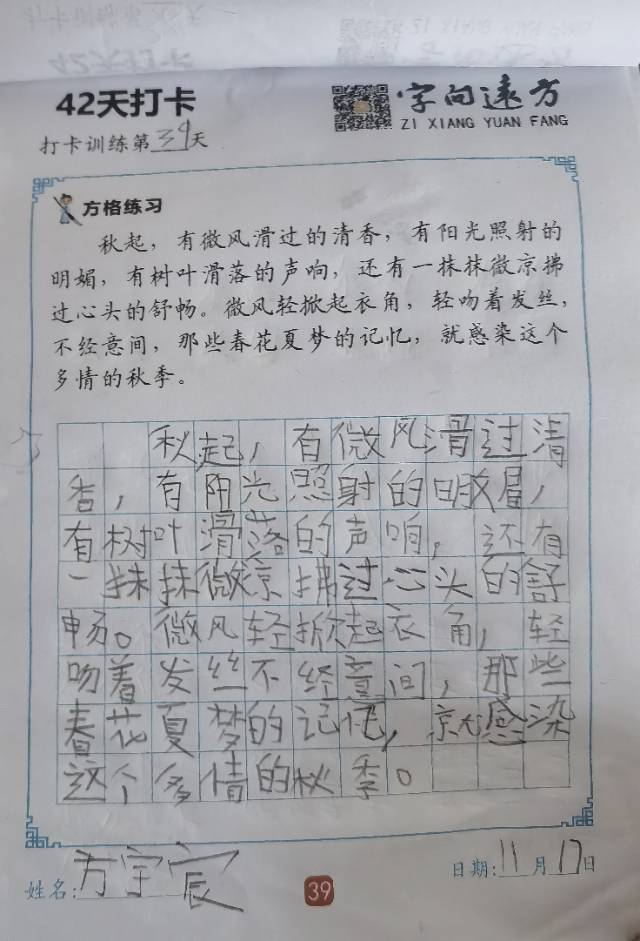 42天打卡
字向远方
ZI XIANG YUAN FANG
打卡训练第39天
方格练习
秋起，有微风滑过的清香，有阳光照射的
明媚，有树叶滑落的声响，还有一抹抹微凉拂
过心头的舒畅。微风轻掀起衣角，轻吻着发丝，
不经意间，那些春花夏梦的记忆，就感染这个
多情的秋季。
秋起，有微风滑过清
香，有阳光照射的明媚，
有树叶滑落的声响，还有
一抹抹微凉拂过心头的舒
畅。微风轻掀起衣角，轻
吻着发丝不经意间，那些
春花夏梦的记忆，就感染
这个多情的秋季。
姓名：方宇宸
39
日期：11月17日